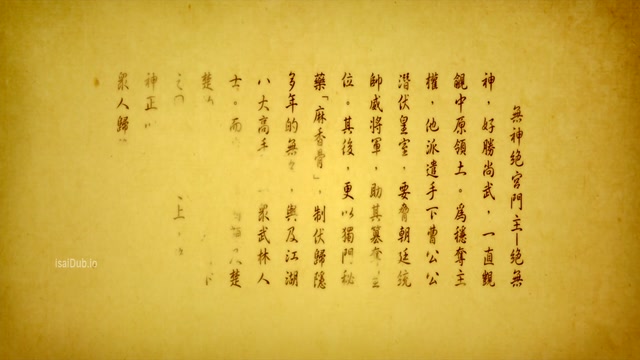 無神絕宮門主—絕無
神，好勝尚武，一直覬
覦中原領土。爲穩奪主
權，他派遣手下曹公公
潛伏皇室，要脅朝廷統
帥威將軍，助其篡奪
位。其後，更以獨門秘
藥「麻香骨」，制伏歸隱
多年的無，與及江湖
八大高手 衆武林人
士。而 人楚
楚
上
神正
衆人歸
isaiDub.io